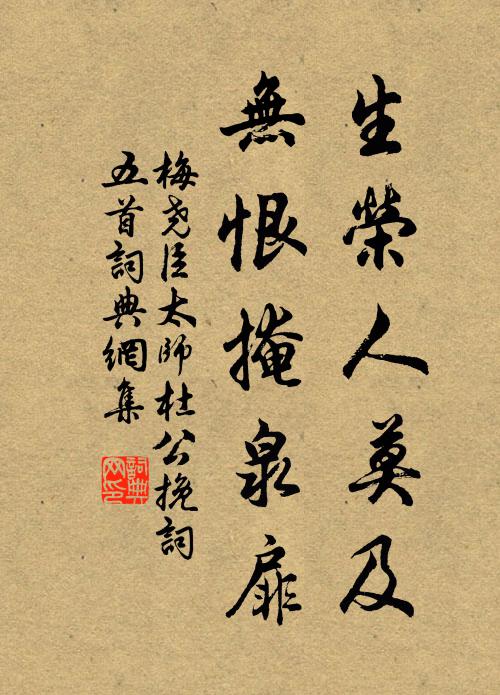 生榮人莫及
無恨掩泉扉
梅堯臣太師杜公挽詞
五首詞典網集
詞典
网印